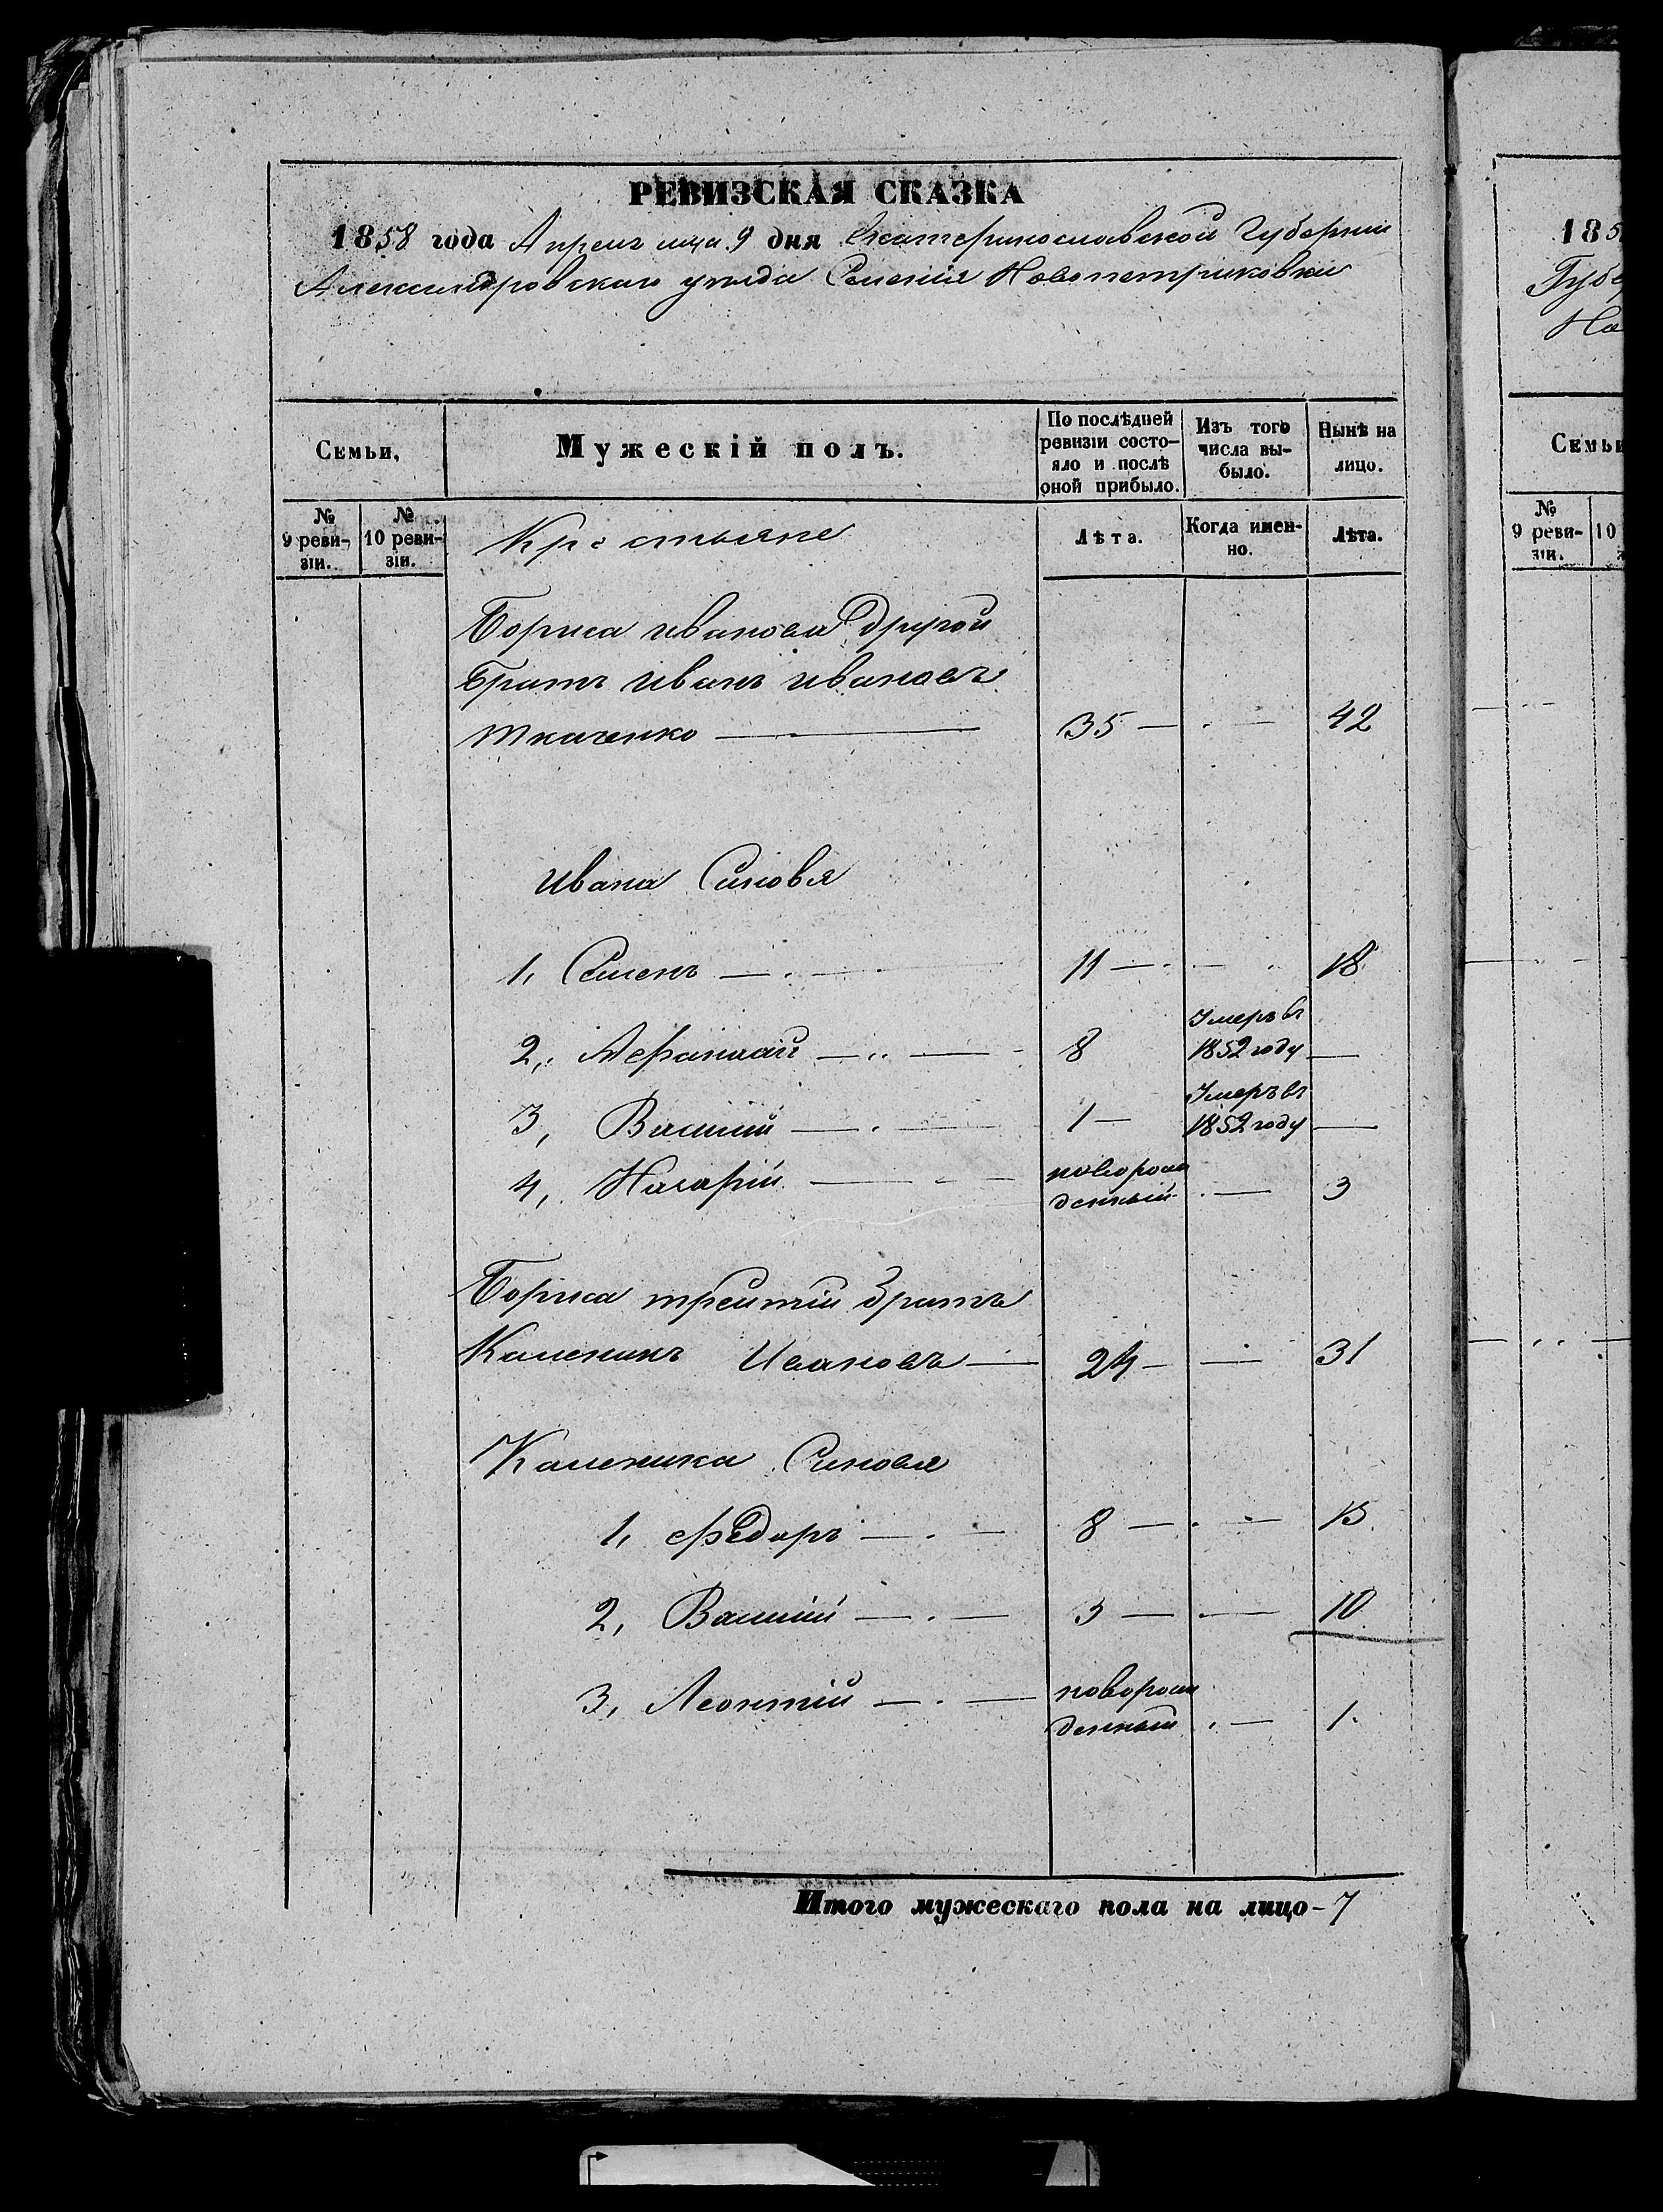 РЕВИЗСКАЯ СКАЗКА
1858 года Апреля мца 9 дня Екатеринославской Губернии
Александровскаго уезда Селения Новопетриковки
Семьи,
Мужескій полъ.
По послѣдней ревизіи состо-
яло и послѣ
оной прибыло.
Изъ того
числа вы-
было.
Нынѣ на
лицо.
№
9 реви-
зіи.
№
10 реви-
зіи.
Крестьяне
Лѣта.
Когда имен-
но.
Лѣта.
Бориса иванова другой
братъ иванъ ивановъ
ткаченко 35 42
ивана Синовя
1, Семенъ 11 18
2, Афанасий 8 Умеръ въ
1852 году
3, Василий 1 Умеръ въ
1852 году
4, Назарій новорож
денный 3
Бориса третий братъ
Каленикъ Ивановъ 24 31
Каленика Синовя
1, Федоръ 8 15
2, Василий 3 10
3, Леонтій новорож
денный 1
Итого мужескаго пола на лицо - 7
185
Губе
Но
Семьи
№
9 реви-
зіи.
10